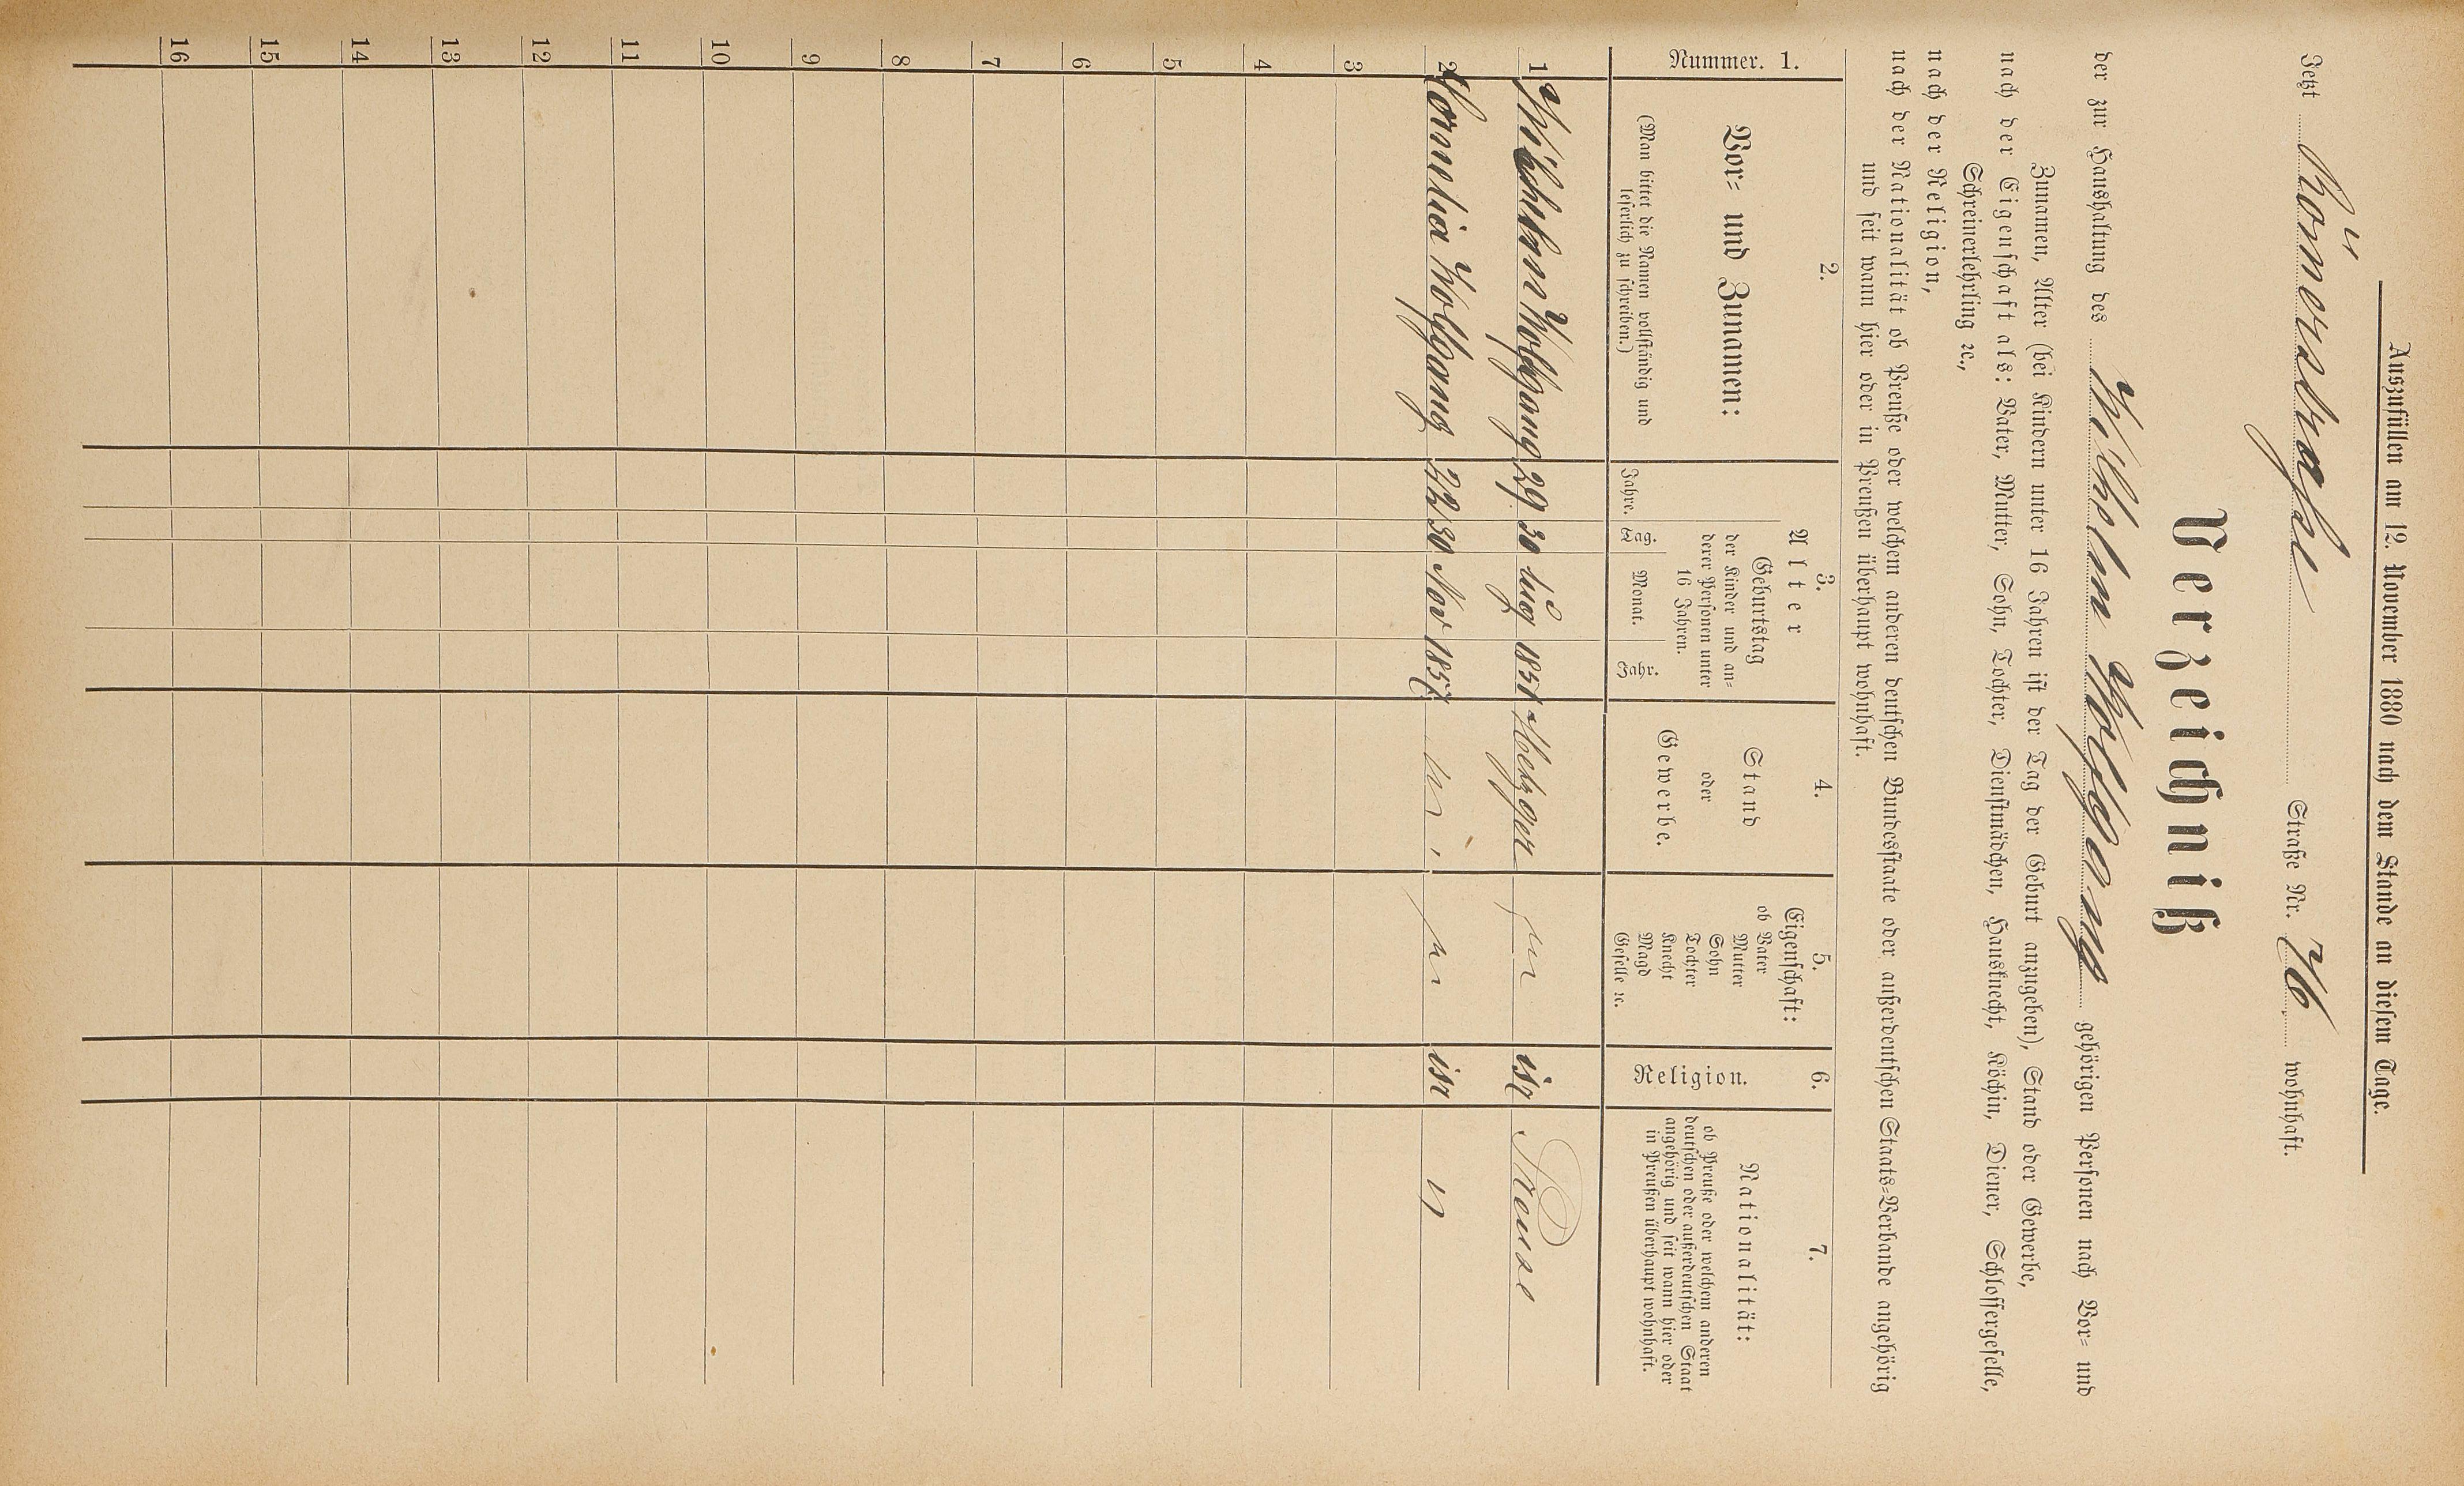 Auszufüllen am 12. November 1880 nach dem Stande an diesem Tage.
Jetzt Römerstraße Straße Nr. 76 wohnhaft.
Verzeichniß
der zur Haushaltung des Wilhelm Wolfgang gehörigen Personen nach Vor- und
Zunamen, Alter (bei Kindern unter 16 Jahren ist der Tag der Geburt anzugeben), Stand oder Gewerbe,
nach der Eigenschaft als: Vater, Mutter, Sohn, Tochter, Dienstmädchen, Hausknecht, Köchin, Diener, Schlossergeselle,
Schreinerlehrling ꝛc.,
nach der Religion,
nach der Nationalität ob Preuße oder welchem anderen deutschen Bundesstaate oder außerdeutschen Staats-Verbande angehörig
und seit wann hier oder in Preußen überhaupt wohnhaft.
Nummer. 1.
2.
Vor- und Zunamen:
(Man bittet die Namen vollständig und
leserlich zu schreiben.)
3.
Alter
Geburtstag
der Kinder und an-
derer Personen unter
16 Jahren.
Jahre. Tag. Monat. Jahr.
4.
Stand
oder
Gewerbe.
5.
Eigenschaft:
ob Vater
Mutter
Sohn
Tochter
Knecht
Magd
Geselle ꝛc.
6.
Religion.
7.
Nationalität:
ob Preuße oder welchem anderen
deutschen oder außerdeutschen Staat
angehörig und seit wann hier oder
in Preußen überhaupt wohnhaft.
1 Wilhelm Wolfgang 29 30 Aug 1851 Metzger isr Preuse
2 Cornelia Wolfgang 22 30 Nov 1857 isr "
3
4
5
6
7
8
9
10
11
12
13
14
15
16